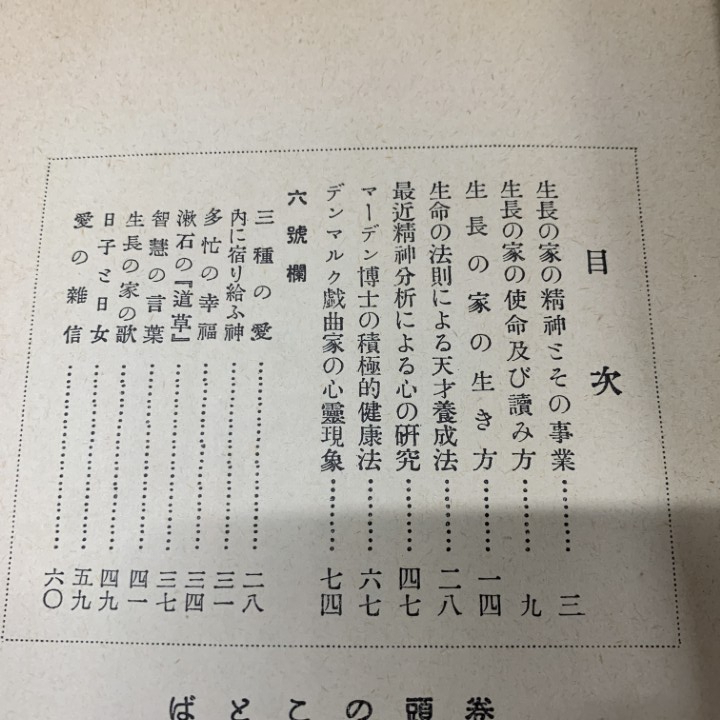 目次
生長の家の精神とその事業…………三
生長の家の使命及び讀み方…………九
生長の家の生き方…………一四
生命の法則による天才養成法…………二八
最近精神分析による心の研究…………四七
マーデン博士の積極的健康法…………六七
デンマルク戯曲家の心靈現象…………七四
六號欄
三種の愛…………二八
內に宿り給ふ神…………三一
多忙の幸福…………三四
漱石の『道草』…………三七
智慧の言葉…………四一
生長の家の歌…………四九
日子と日女…………五九
愛の雜信…………六〇
卷頭のことば